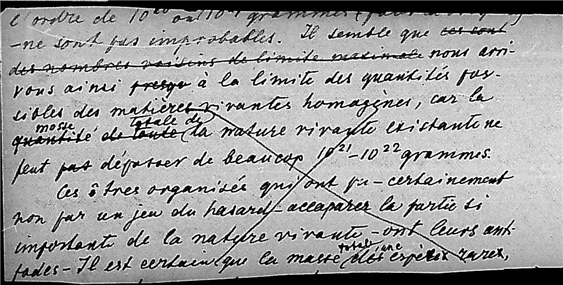 l'ordre de 10²⁰ ou 10²¹ grammes
– ne sont pas improbables. Il semble que ces sont
des nombres voisins de limite maximale nous arri-
vons ainsi presqu à la limite des quantités pos-
sibles des matières vivantes homogènes, car la
masse totale de
quantité de toute la nature vivante existante ne
peut pas dépasser de beaucoup 10²¹–10²² grammes.
Ces êtres organisés qui ont pu – certainement
non par un jeu du hasard – accaparer la partie si
importante de la nature vivante – ont leurs anti-
totale, une
podes – Il est certain que la masse des espèces rares,